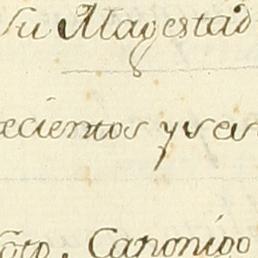 Su Magestad
ecientos y seis
Canonigo